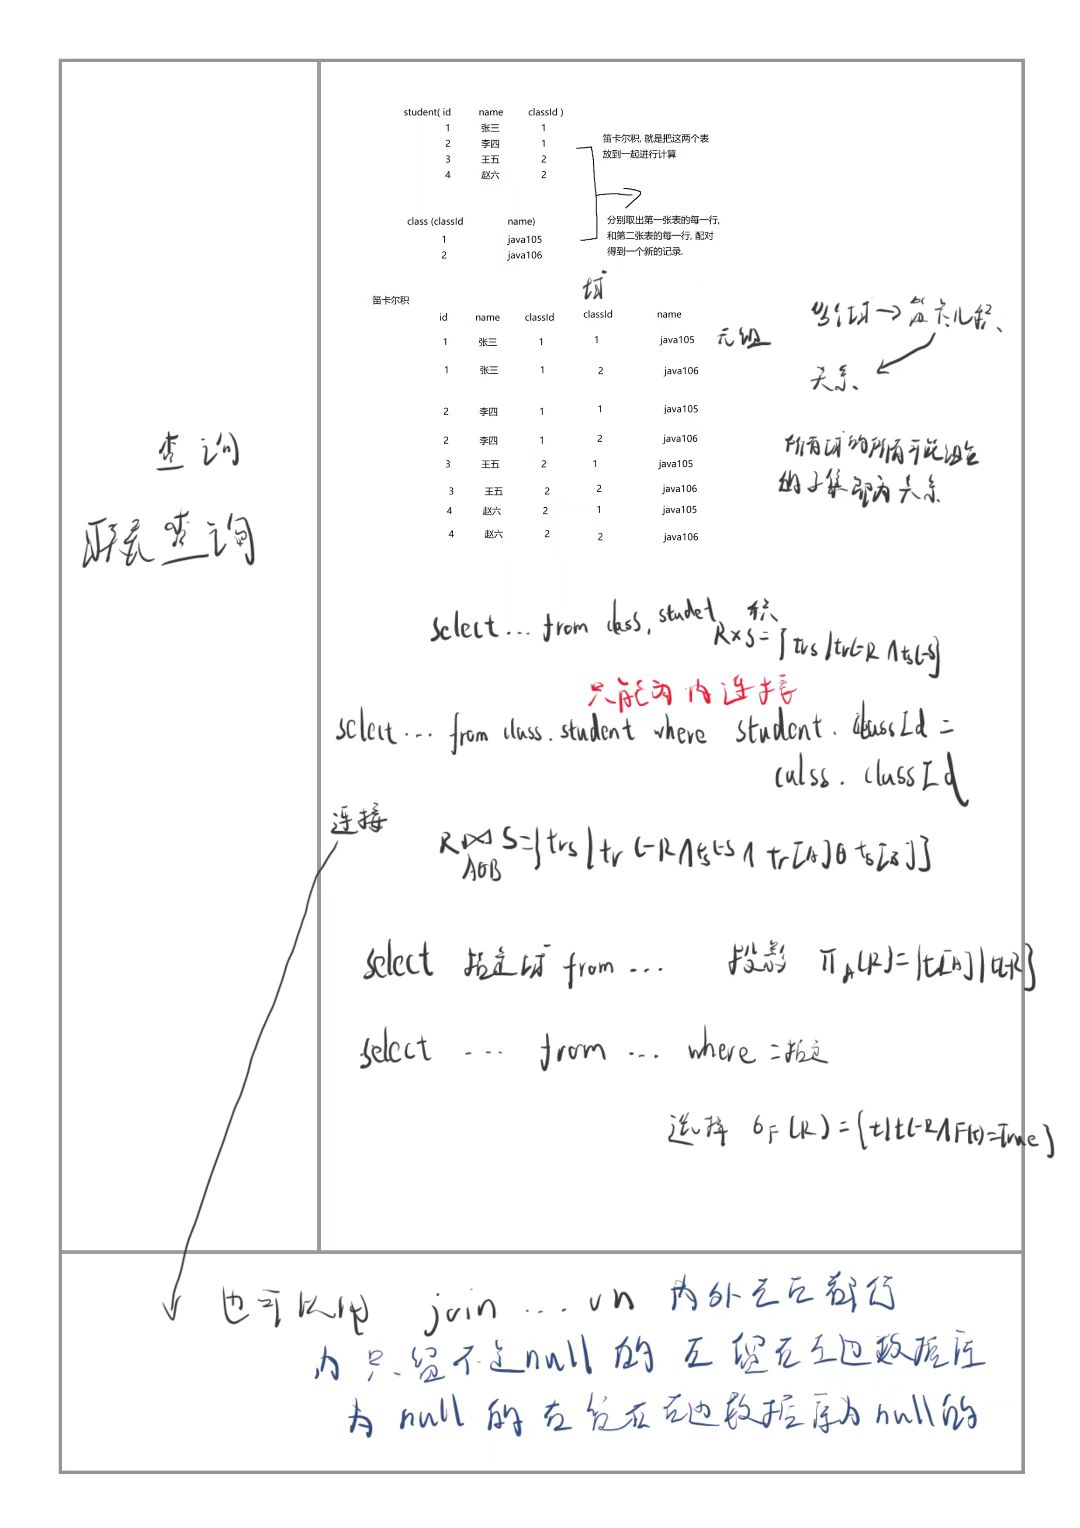 student( id name classId )
1 张三 1
2 李四 1
3 王五 2
4 赵六 2
笛卡尔积, 就是把这两个表
放到一起进行计算
class (classId name)
1 java105
2 java106
分别取出第一张表的每一行,
和第二张表的每一行, 配对
得到一个新的记录.
域
笛卡尔积
id name classId classId name
1 张三 1 1 java105 元组
1 张三 1 2 java106
2 李四 1 1 java105
2 李四 1 2 java106
3 王五 2 1 java105
3 王五 2 2 java106
4 赵六 2 1 java105
4 赵六 2 2 java106
域 → 笛卡儿积、
关系、
所有域的所有可能组合
的子集即为关系
查询
联表查询
select ... from class, studet 积
R×S={trs|tr∈R∧ts∈S}
只能为内连接
select ... from class.student where student.classId =
calss.classId
连接
R⋈S={trs|tr∈R∧ts∈S∧tr[A]θts[B]}
AθB
select 指定域 from ... 投影 πA(R)={t[A]|t∈R}
select ... from ... where =指定
选择 σF(R)={t|t∈R∧F(t)=True}
也可以使 join ... on 内外左右都行
内只留不是null的 左留在左边数据库
为null的右留在右边数据库为null的